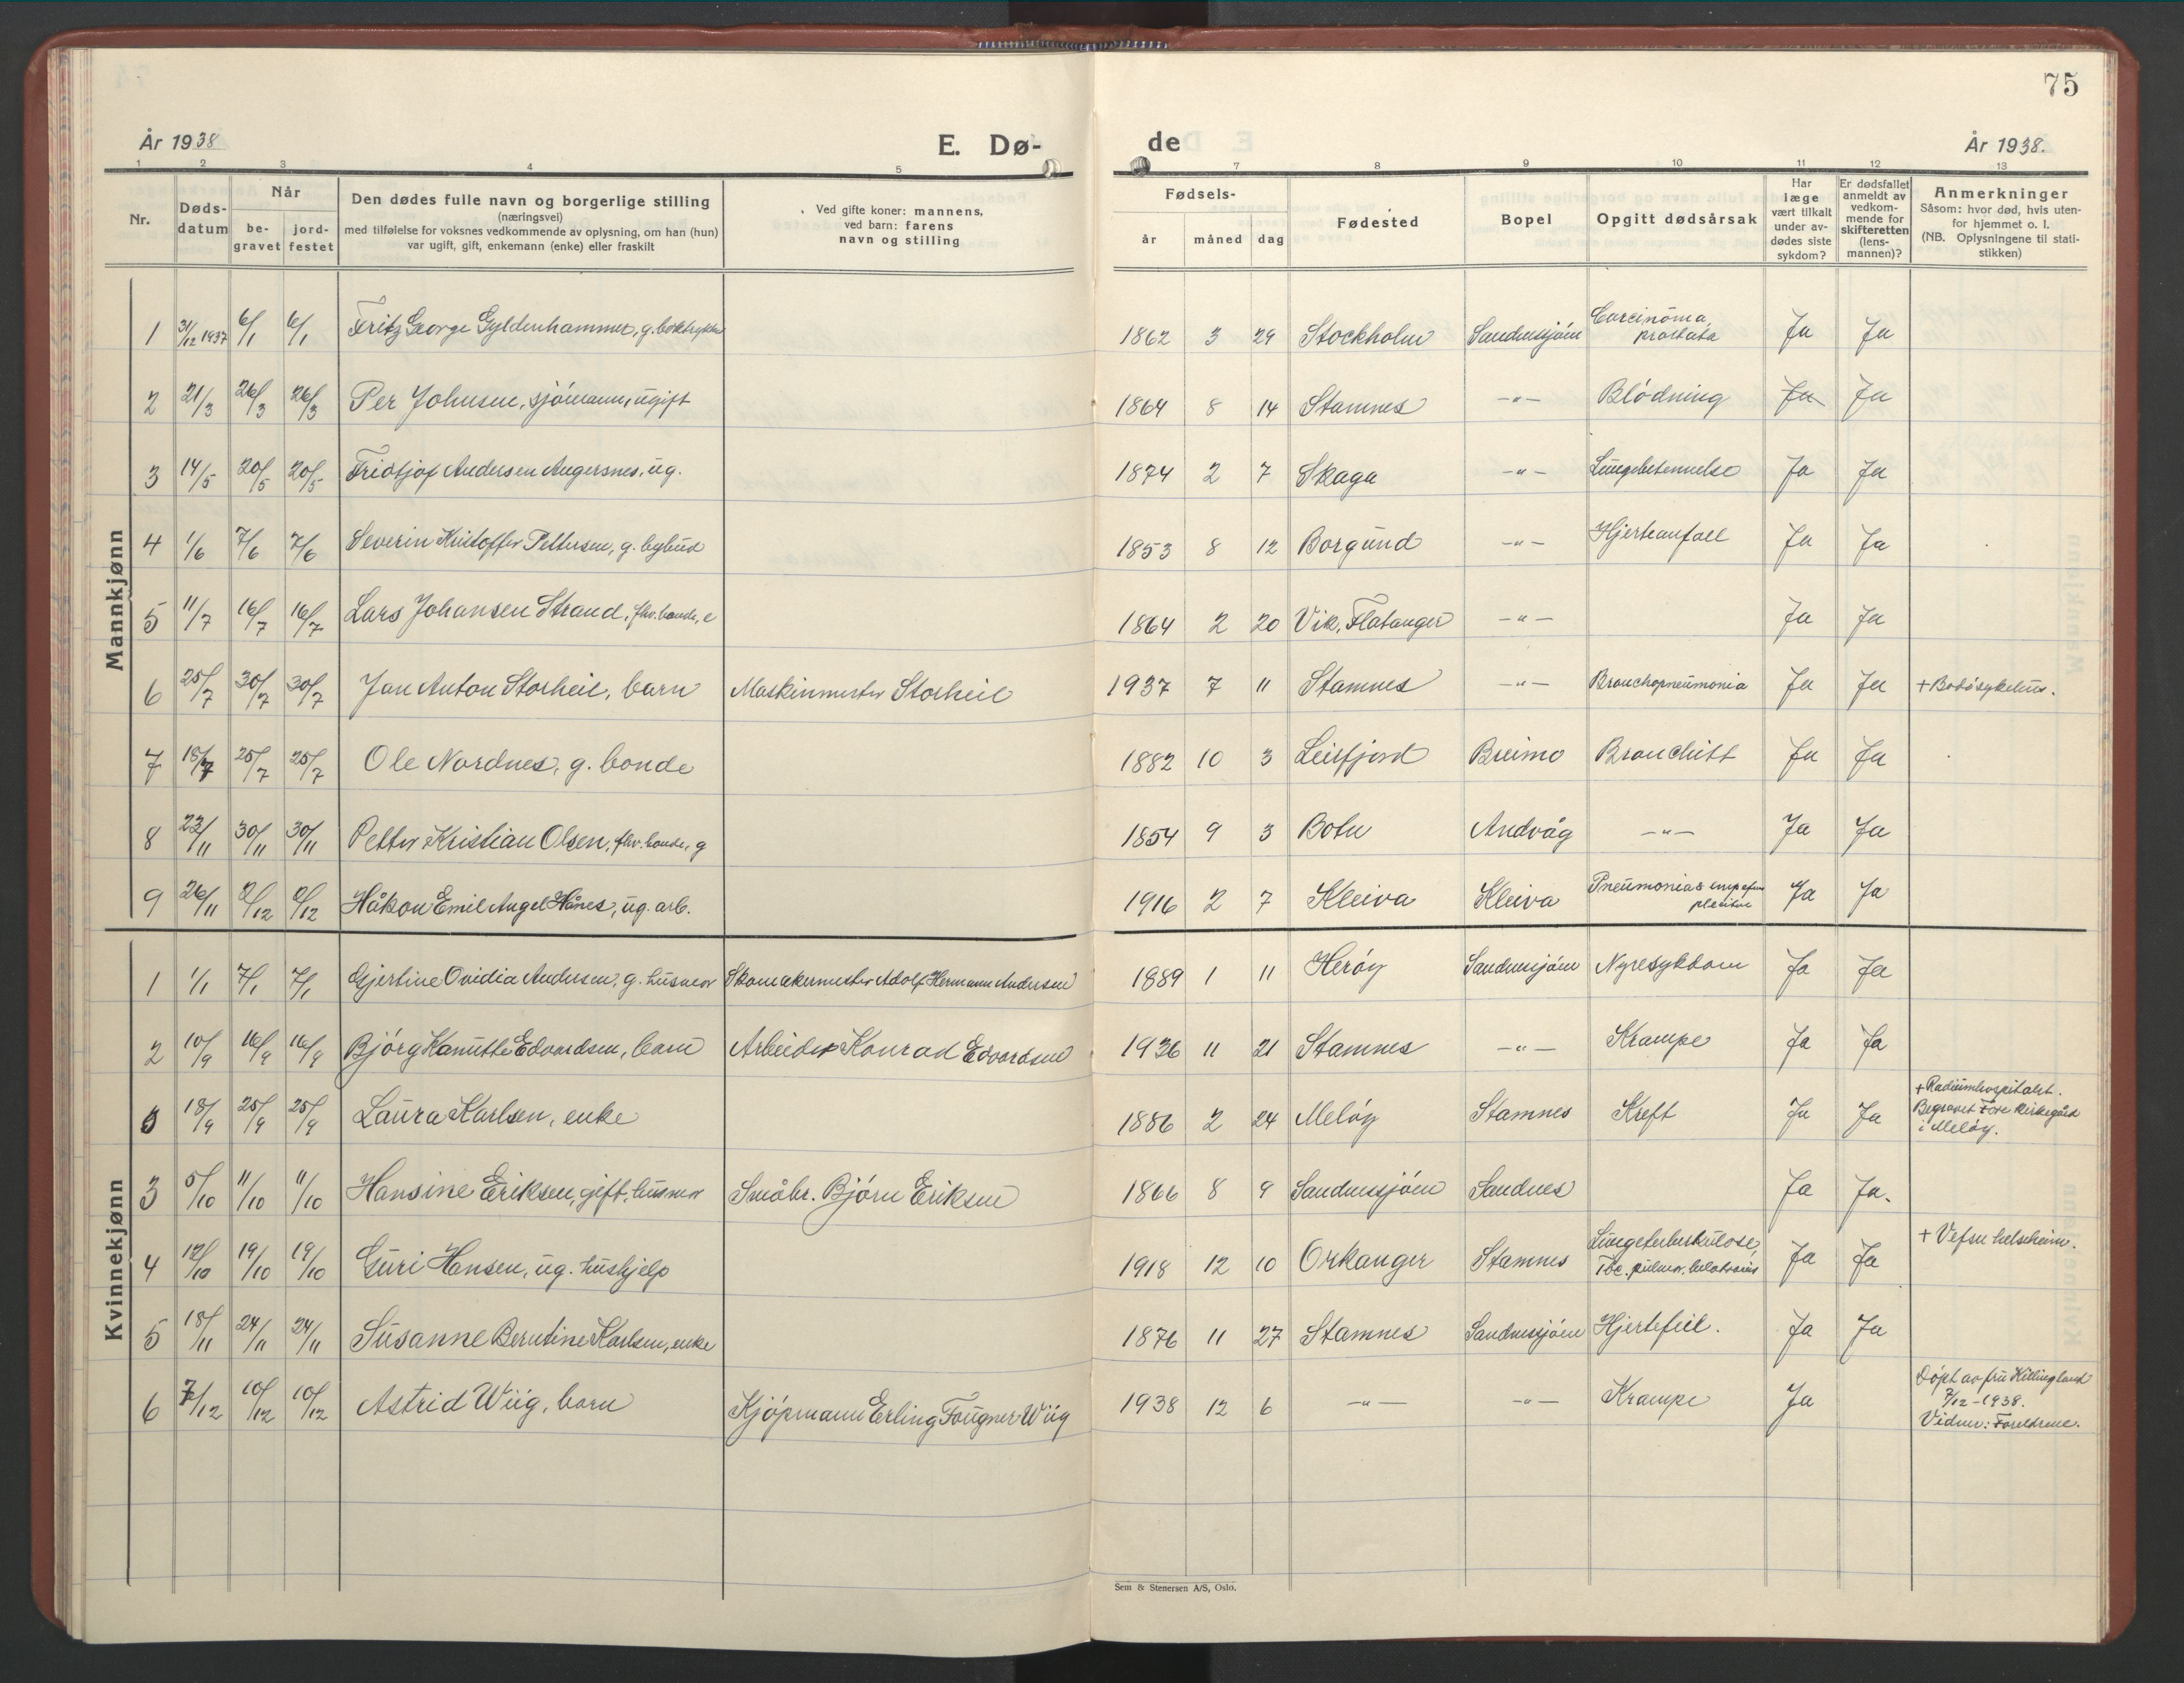 75
År 1938
E. Dø-
de
År 1938.
1 2 3 4 5 7 8 9 10 11 12 13
Nr.
Døds-
datum
Når
be-
gravet
jord-
festet
Den dødes fulle navn og borgerlige stilling
(næringsvei)
med tilføielse for voksnes vedkommende av oplysning, om han (hun)
var ugift, gift, enkemann (enke) eller fraskilt
Ved gifte koner: mannens,
ved barn: farens
navn og stilling
Fødsels-
år måned dag
Fødested
Bopel
Opgitt dødsårsak
Har
læge
vært tilkalt
under av-
dødes siste
sykdom?
Er dødsfallet
anmeldt av
vedkom-
mende for
skifteretten
(lens-
mannen)?
Anmerkninger
Såsom: hvor død, hvis uten-
for hjemmet o. l.
(NB. Oplysningene til stati-
stikken)
Mannkjønn
1 31/12 1937 6/1 6/1 Fritz George Gyldenhammer, g. boktrykker 1862 3 29 Stockholm Sandnessjøen Carcinoma prostata Ja Ja
2 21/3 26/3 26/3 Per Johnsen, sjømann, ugift 1864 8 14 Stamnes -"- Blødning Ja Ja
3 14/5 20/5 20/5 Fridtjof Andersen Angersnes, ug. 1874 2 7 Skaga -"- Lungebetennelse Ja Ja
4 1/6 7/6 7/6 Severin Kristoffer Pettersen, g. bybud 1853 8 12 Borgund -"- Hjerteanfall Ja Ja
5 11/7 16/7 16/7 Lars Johansen Strand, fhv. bonde, e 1864 2 20 Vik, Flatanger -"- Ja Ja
6 25/7 30/7 30/7 Jan Anton Storheil, barn Maskinmester Storheil 1937 7 11 Stamnes -"- Bronchopneumonia Ja Ja + Bodø sykehus.
7 18/7 25/7 25/7 Ole Nordnes, g. bonde 1882 10 3 Leirfjord Breimo Bronchitt Ja Ja
8 23/11 30/11 30/11 Petter Kristian Olsen, fhv. bonde, g 1854 9 3 Botn Andvåg -"- Ja Ja
9 26/11 2/12 2/12 Håkon Emil Angel Hånes, ug. arb. 1916 2 7 Kleiva Kleiva Pneumonia Ja Ja
Kvinnekjønn
1 1/1 7/1 7/1 Gjertine Ovidia Andersen, g. husmor Skomakermester Adolf Hermann Andersen 1889 1 11 Herøy Sandnessjøen Nyresykdom Ja Ja
2 10/9 16/9 16/9 Bjørg Kanutte Edvardsen, barn Arbeider Konrad Edvardsen 1936 11 21 Stamnes -"- Krampe Ja Ja
0 18/9 25/9 25/9 Laura Karlsen, enke 1886 2 24 Meløy Stamnes Kreft Ja Ja + Radiumhospitalet.
Begravet Føre kirkegård
i Meløy.
3 5/10 11/10 11/10 Hansine Eriksen, gift, husmor Småbr. Bjørn Eriksen 1866 8 9 Sandnessjøen Sandnes Ja Ja.
4 12/10 19/10 19/10 Guri Hansen, ug. hushjelp 1918 12 10 Orkanger Stamnes Lungetuberkulose, Tbc. pulmon. Ja Ja + Vefsn helseheim.
5 18/11 24/11 24/11 Susanne Berntine Karlsen, enke 1876 11 27 Stamnes Sandnessjøen Hjertefeil. Ja Ja
6 7/12 10/12 10/12 Astrid Wiig, barn Kjøpmann Erling Fougner Wiig 1938 12 6 -"- -"- Krampe Ja Døpt av fru Killingland
7/12-1938.
Vidner: Foreldrene.
Sem & Stenersen A/S, Oslo.